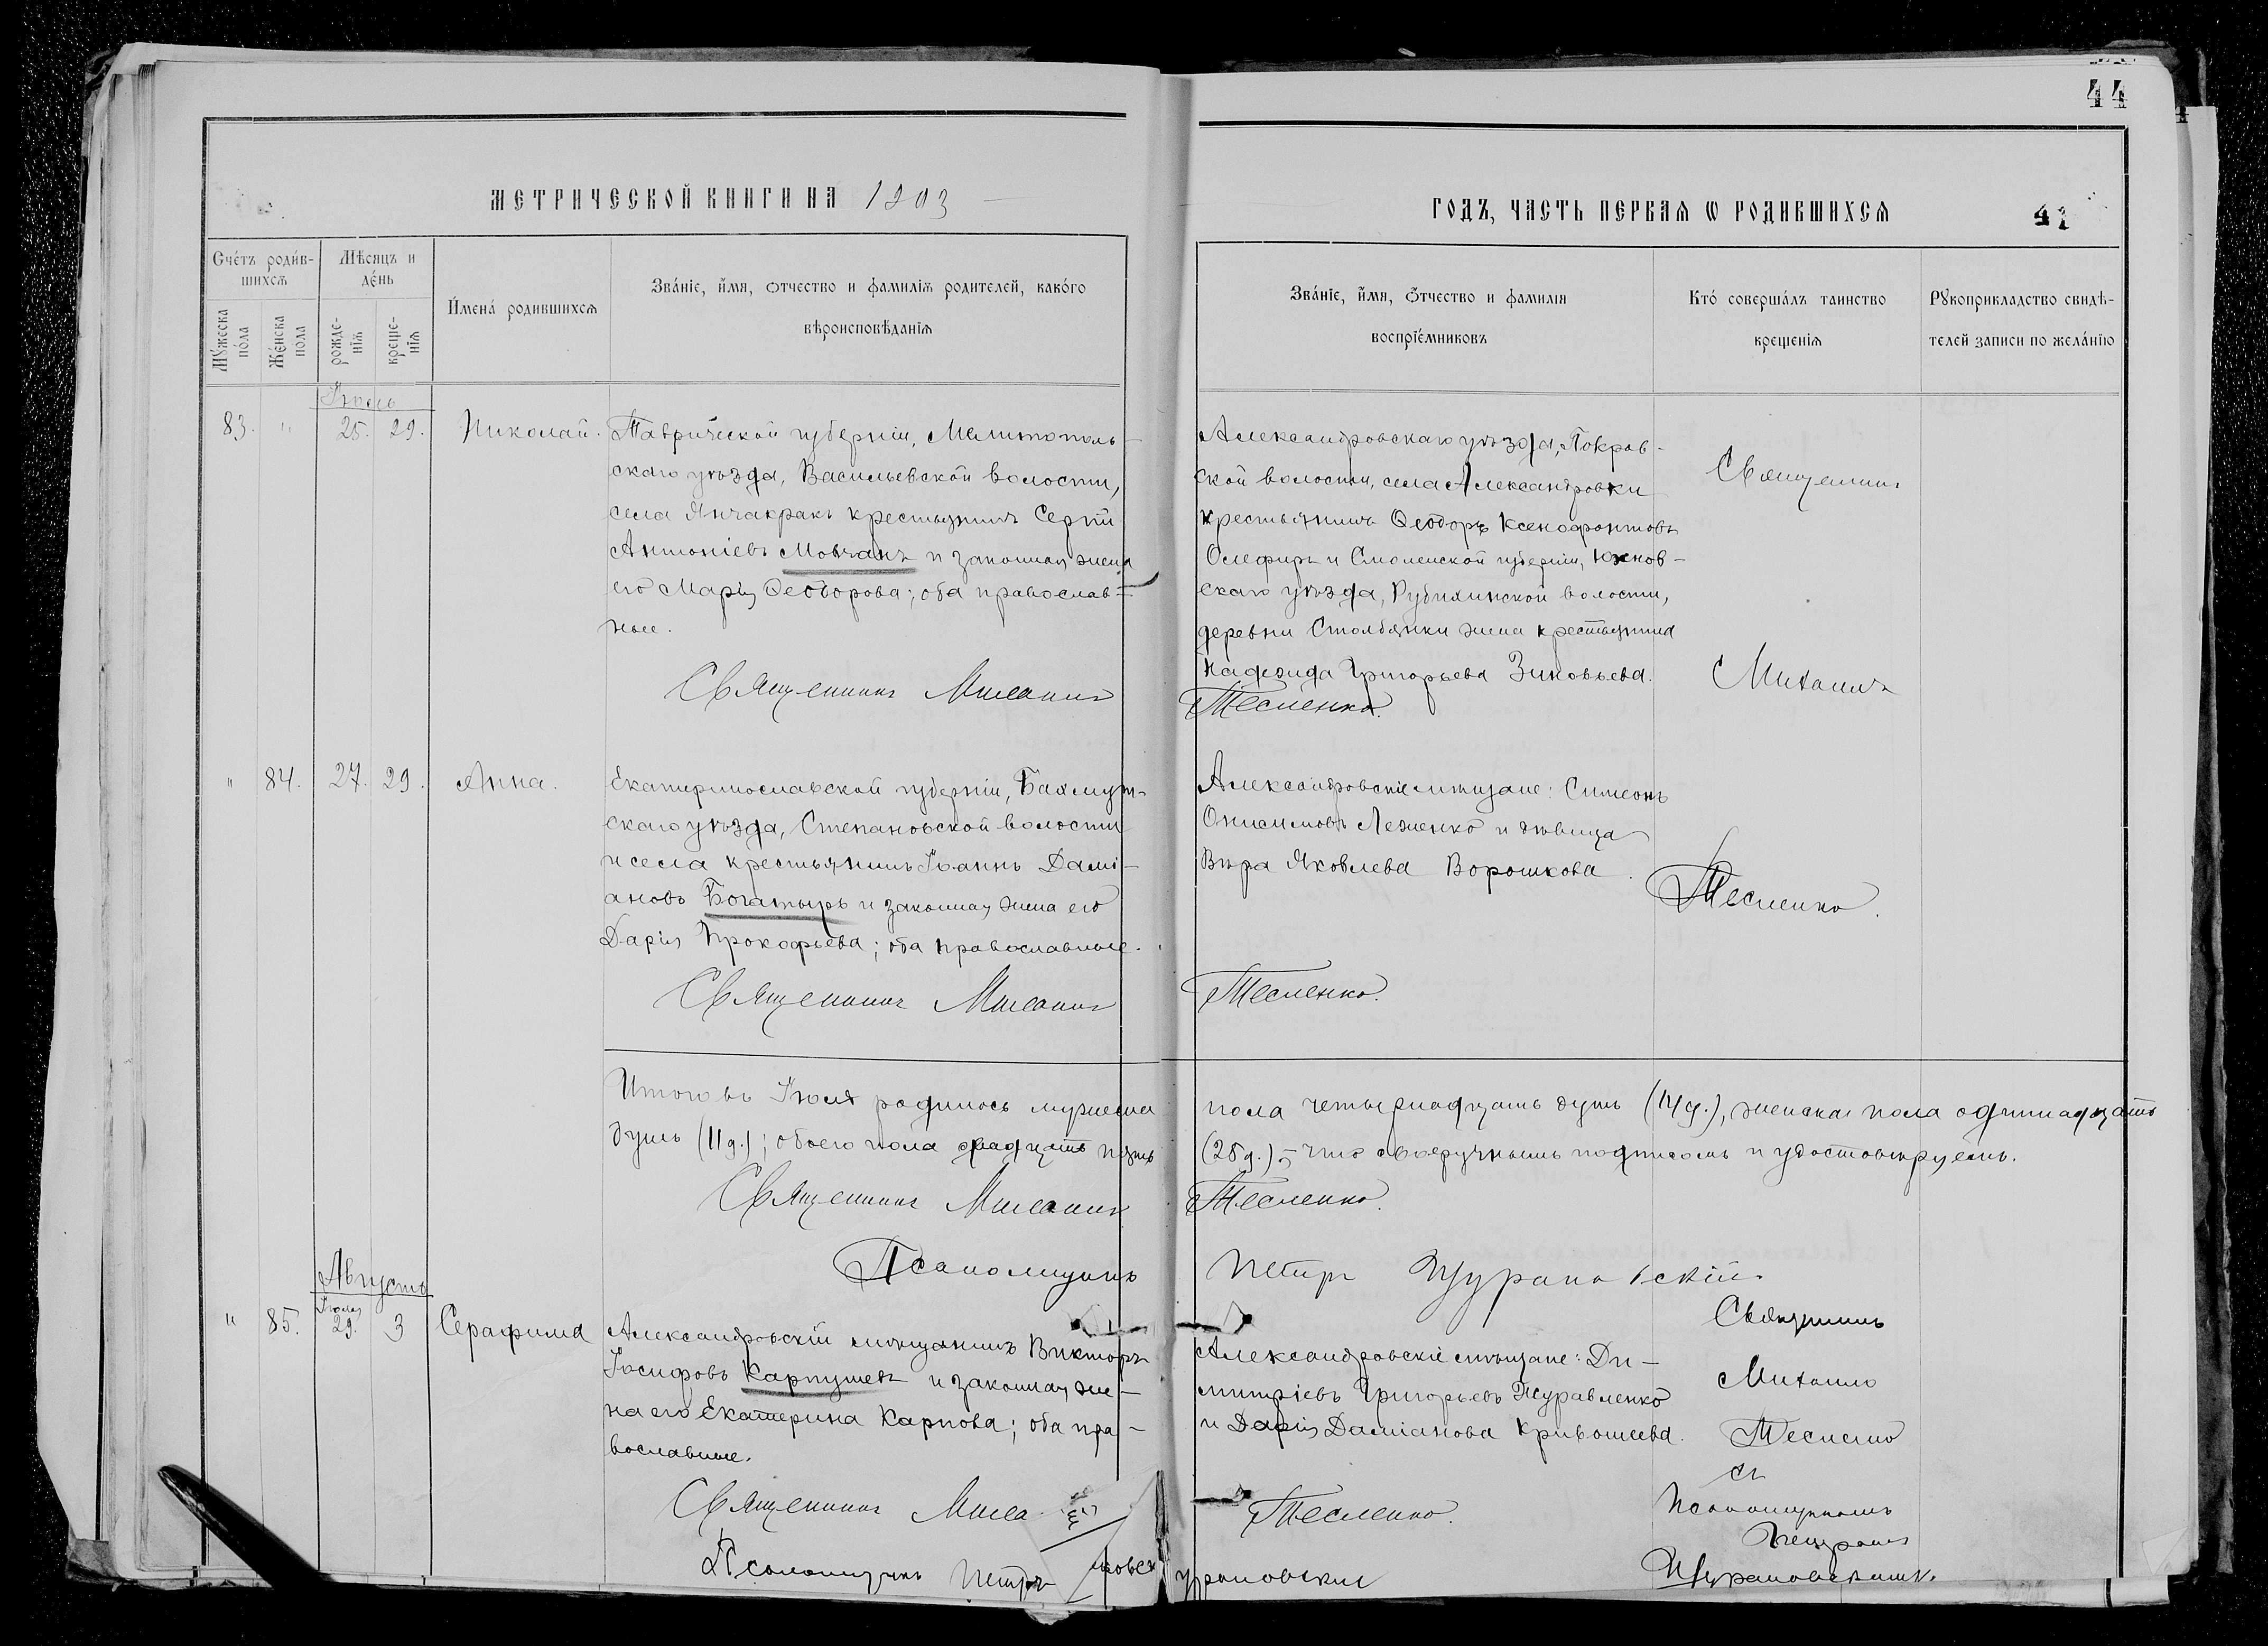 44
МЕТРИЧЕСКОЙ КНИГИ НА 1903
ГОДЪ, ЧАСТЬ ПЕРВАЯ Ѡ РОДИВШИХСЯ
41
Счéтъ роди́в-
шихсѧ
Мѣсѧцъ и
дéнь
Мꙋ́жеска
пóла
Жéнска
пола
рожде-
нїѧ
креще-
нїѧ
И́мена́ родившихсѧ
Зва́нїе, и́мѧ, ѻтчество и фамилїѧ родителей, како́го
вѣроисповѣ́данїѧ
Зва́нїе, и́мѧ, ѻ́тчество и фамилїѧ
воспрїе́мниковъ
Кто́ соверша́лъ таинство
крещенїѧ
Рꙋкоприкладство свидѣ-
телей записи по жела́нїю
Іюль
83. " 25. 29. Николай.
Таврической губерніи, Мелитополь-
скаго уѣзда, Васильевской волости,
села Янчакракъ крестьянинъ Сергій
Антоніевъ Мовчанъ и законная жена
его Марія Ѳеодорова; оба православ-
ные.
Священникъ Михаилъ
Александровскаго уѣзда, Покров-
ской волости, села Александровки
крестьянинъ Ѳеодоръ Ксенофонтовъ
Олефиръ и Смоленской губерніи, Юхнов-
скаго уѣзда, Рубихинской волости,
деревни Столбянки жена крестьянина
Надежда Григорьева Зиновьева.
Тесленко.
Священникъ
Михаилъ
Тесленко.
" 84. 27. 29. Анна.
Екатеринославской губерніи, Бахмут-
скаго уѣзда, Степановской волости
и села крестьянинъ Іоаннъ Дамі-
ановъ Богатырь и законная жена его
Дарія Прокофьева; оба православные.
Священникъ Михаилъ
Александровскіе мѣщане: Симеонъ
Онисимовъ Леженко и дѣвица
Вѣра Яковлева Ворошкова.
Тесленко.
Итого въ Іюлѣ родилось мужеска пола четырнадцать душъ (14 д.), женска пола одиннадцать
душъ (11 д.); обоего пола двадцать пять (25 д.), что своеручнымъ подписомъ и удостовѣряемъ.
Священникъ Михаилъ Тесленко.
Псаломщикъ Петръ Журановскій.
Августъ
Іюля
" 85. 29. 3 Серафима
Александровскій мѣщанинъ Викторъ
Іосифовъ Карпушевъ и законная же-
на его Екатерина Карпова; оба пра-
вославные.
Священникъ Миха
Псаломщикъ Петръ
Александровскіе мѣщане: Ди-
митріевъ Григорьевъ Журавленко
и Дарія Даміанова Кривошеева.
Тесленко.
урановскій
Священникъ
Михаилъ
Тесленко
съ
Псаломщикомъ
Петромъ
Журановскимъ.